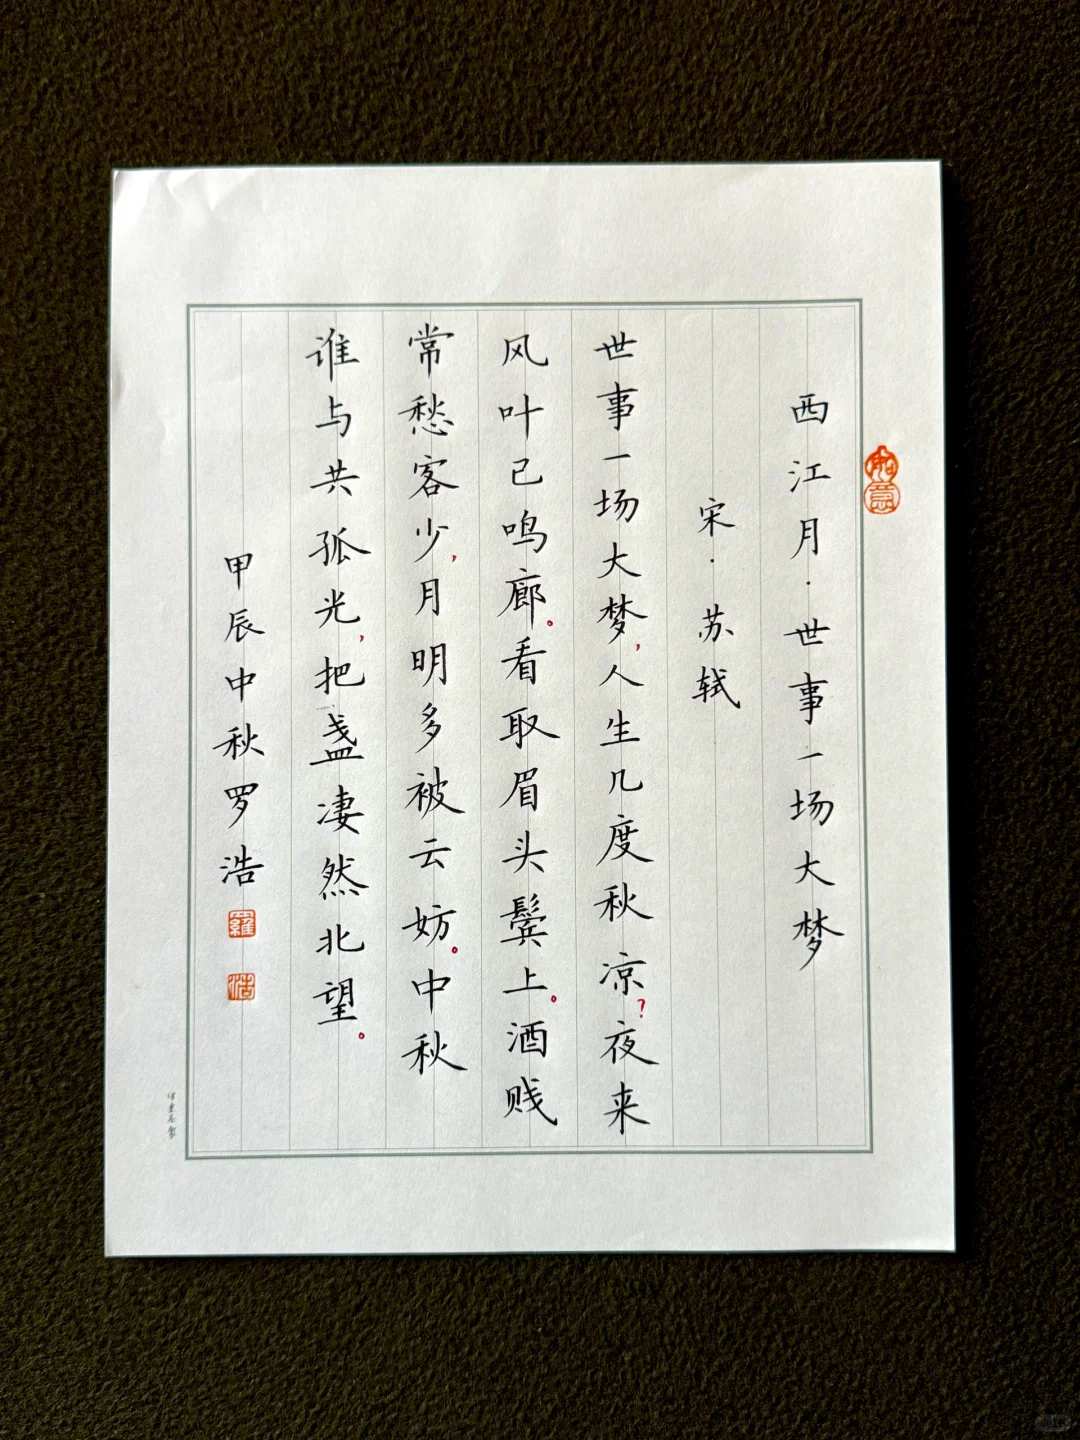 西江月·世事一场大梦
如意
宋·苏轼
世事一场大梦,人生几度秋凉?夜来
风叶已鸣廊。看取眉头鬓上。酒贱
常愁客少,月明多被云妨。中秋
谁与共孤光,把盏凄然北望。
甲辰中秋罗浩
羅
浩